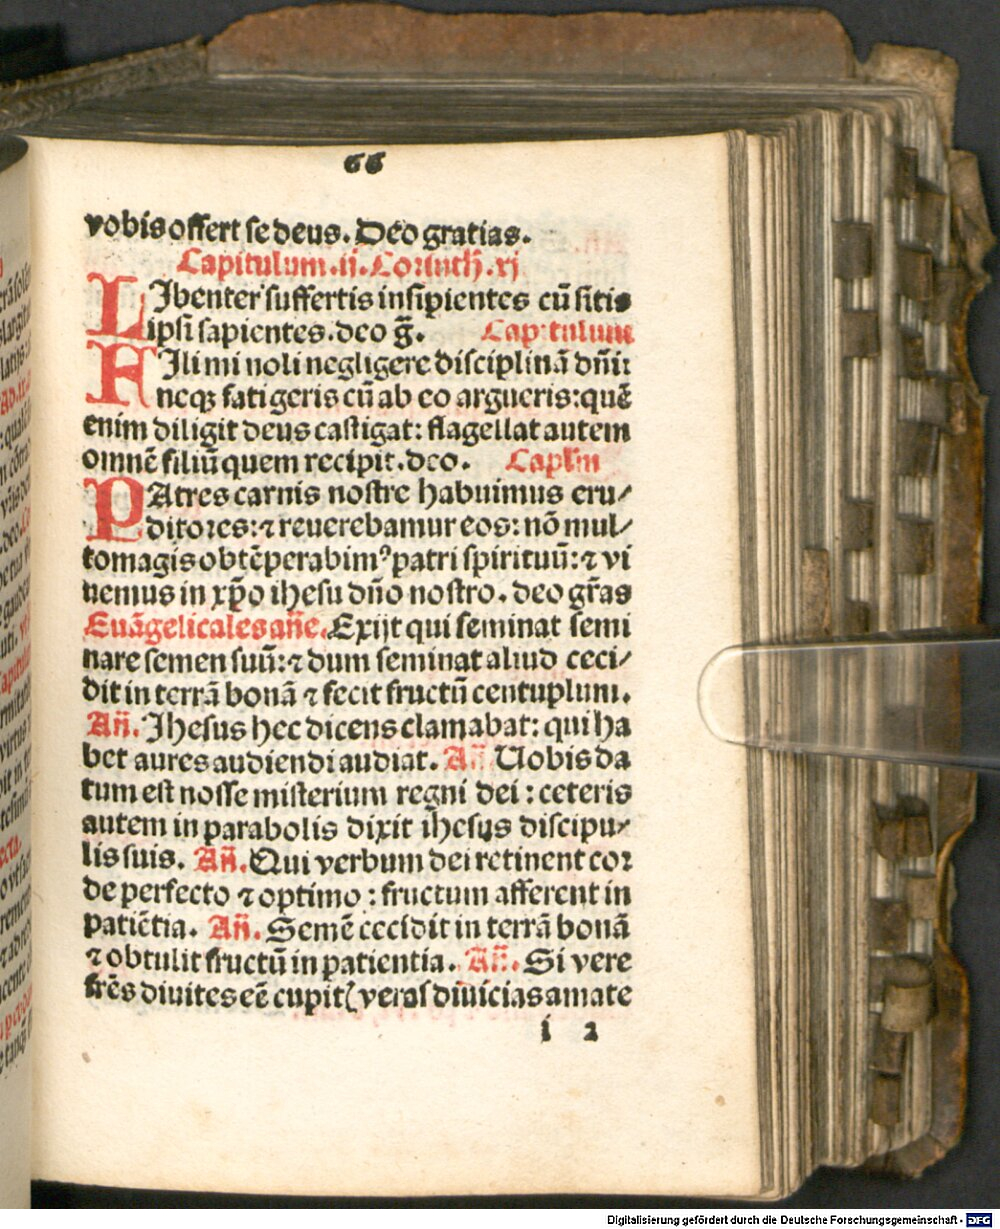 66
vobis offert se deus. Deo gratias.
Capitulum .ii. Corinth̄. xj
LIbenter suffertis insipientes cū sitis
ipsi sapientes. deo ḡ. Capitulum
FIli mi noli negligere disciplinā dn̄i:
neqꝫ fatigeris cū ab eo argueris: quē
enim diligit deus castigat: flagellat autem
omnē filiū quem recipit. deo. Capl'm
PAtres carnis nostre habuimus eru⸗
ditores: ⁊ reuerebamur eos: nō mul⸗
tomagis obtēperabimꝰ patri spirituū: ⁊ vi
uemus in xp̄o ihesu dn̄o nostro. deo gr̄as
Euāgelicales an̄e. Exijt qui seminat semi
nare semen suū: ⁊ dum seminat aliud ceci⸗
dit in terrā bonā ⁊ fecit fructū centuplum.
An̄. Jhesus hec dicens clamabat: qui ha
bet aures audiendi audiat. An̄. Uobis da
tum est nosse misterium regni dei: ceteris
autem in parabolis dixit ih̄esus discipu⸗
lis suis. An̄. Qui verbum dei retinent cor
de perfecto ⁊ optimo: fructum afferent in
patiētia. An̄. Semē cecidit in terrā bonā
⁊ obtulit fructū in patientia. An̄. Si vere
fr̄es diuites eē cupitꝭ veras diuicias amate
i 2
Digitalisierung gefördert durch die Deutsche Forschungsgemeinschaft - DFG